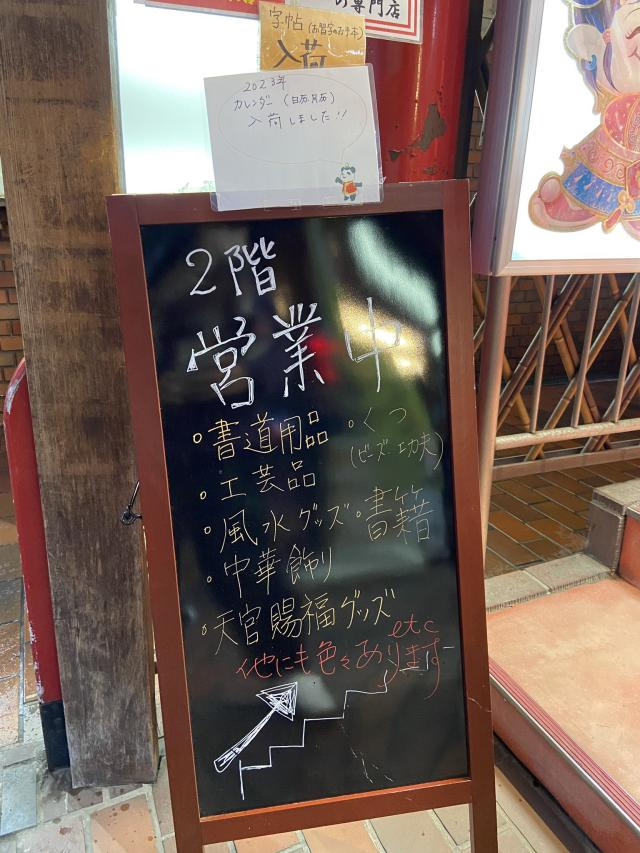 の専門店
字帖(お習字のお手本)
入荷
2023年
カレンダー(日历.月历)
入荷しました!!
2階
営業中
○書道用品
○くつ
(ビーズ・功夫)
○工芸品
○風水グッズ
○書籍
○中華飾り
○天官賜福グッズ
etc
他にも色々あります